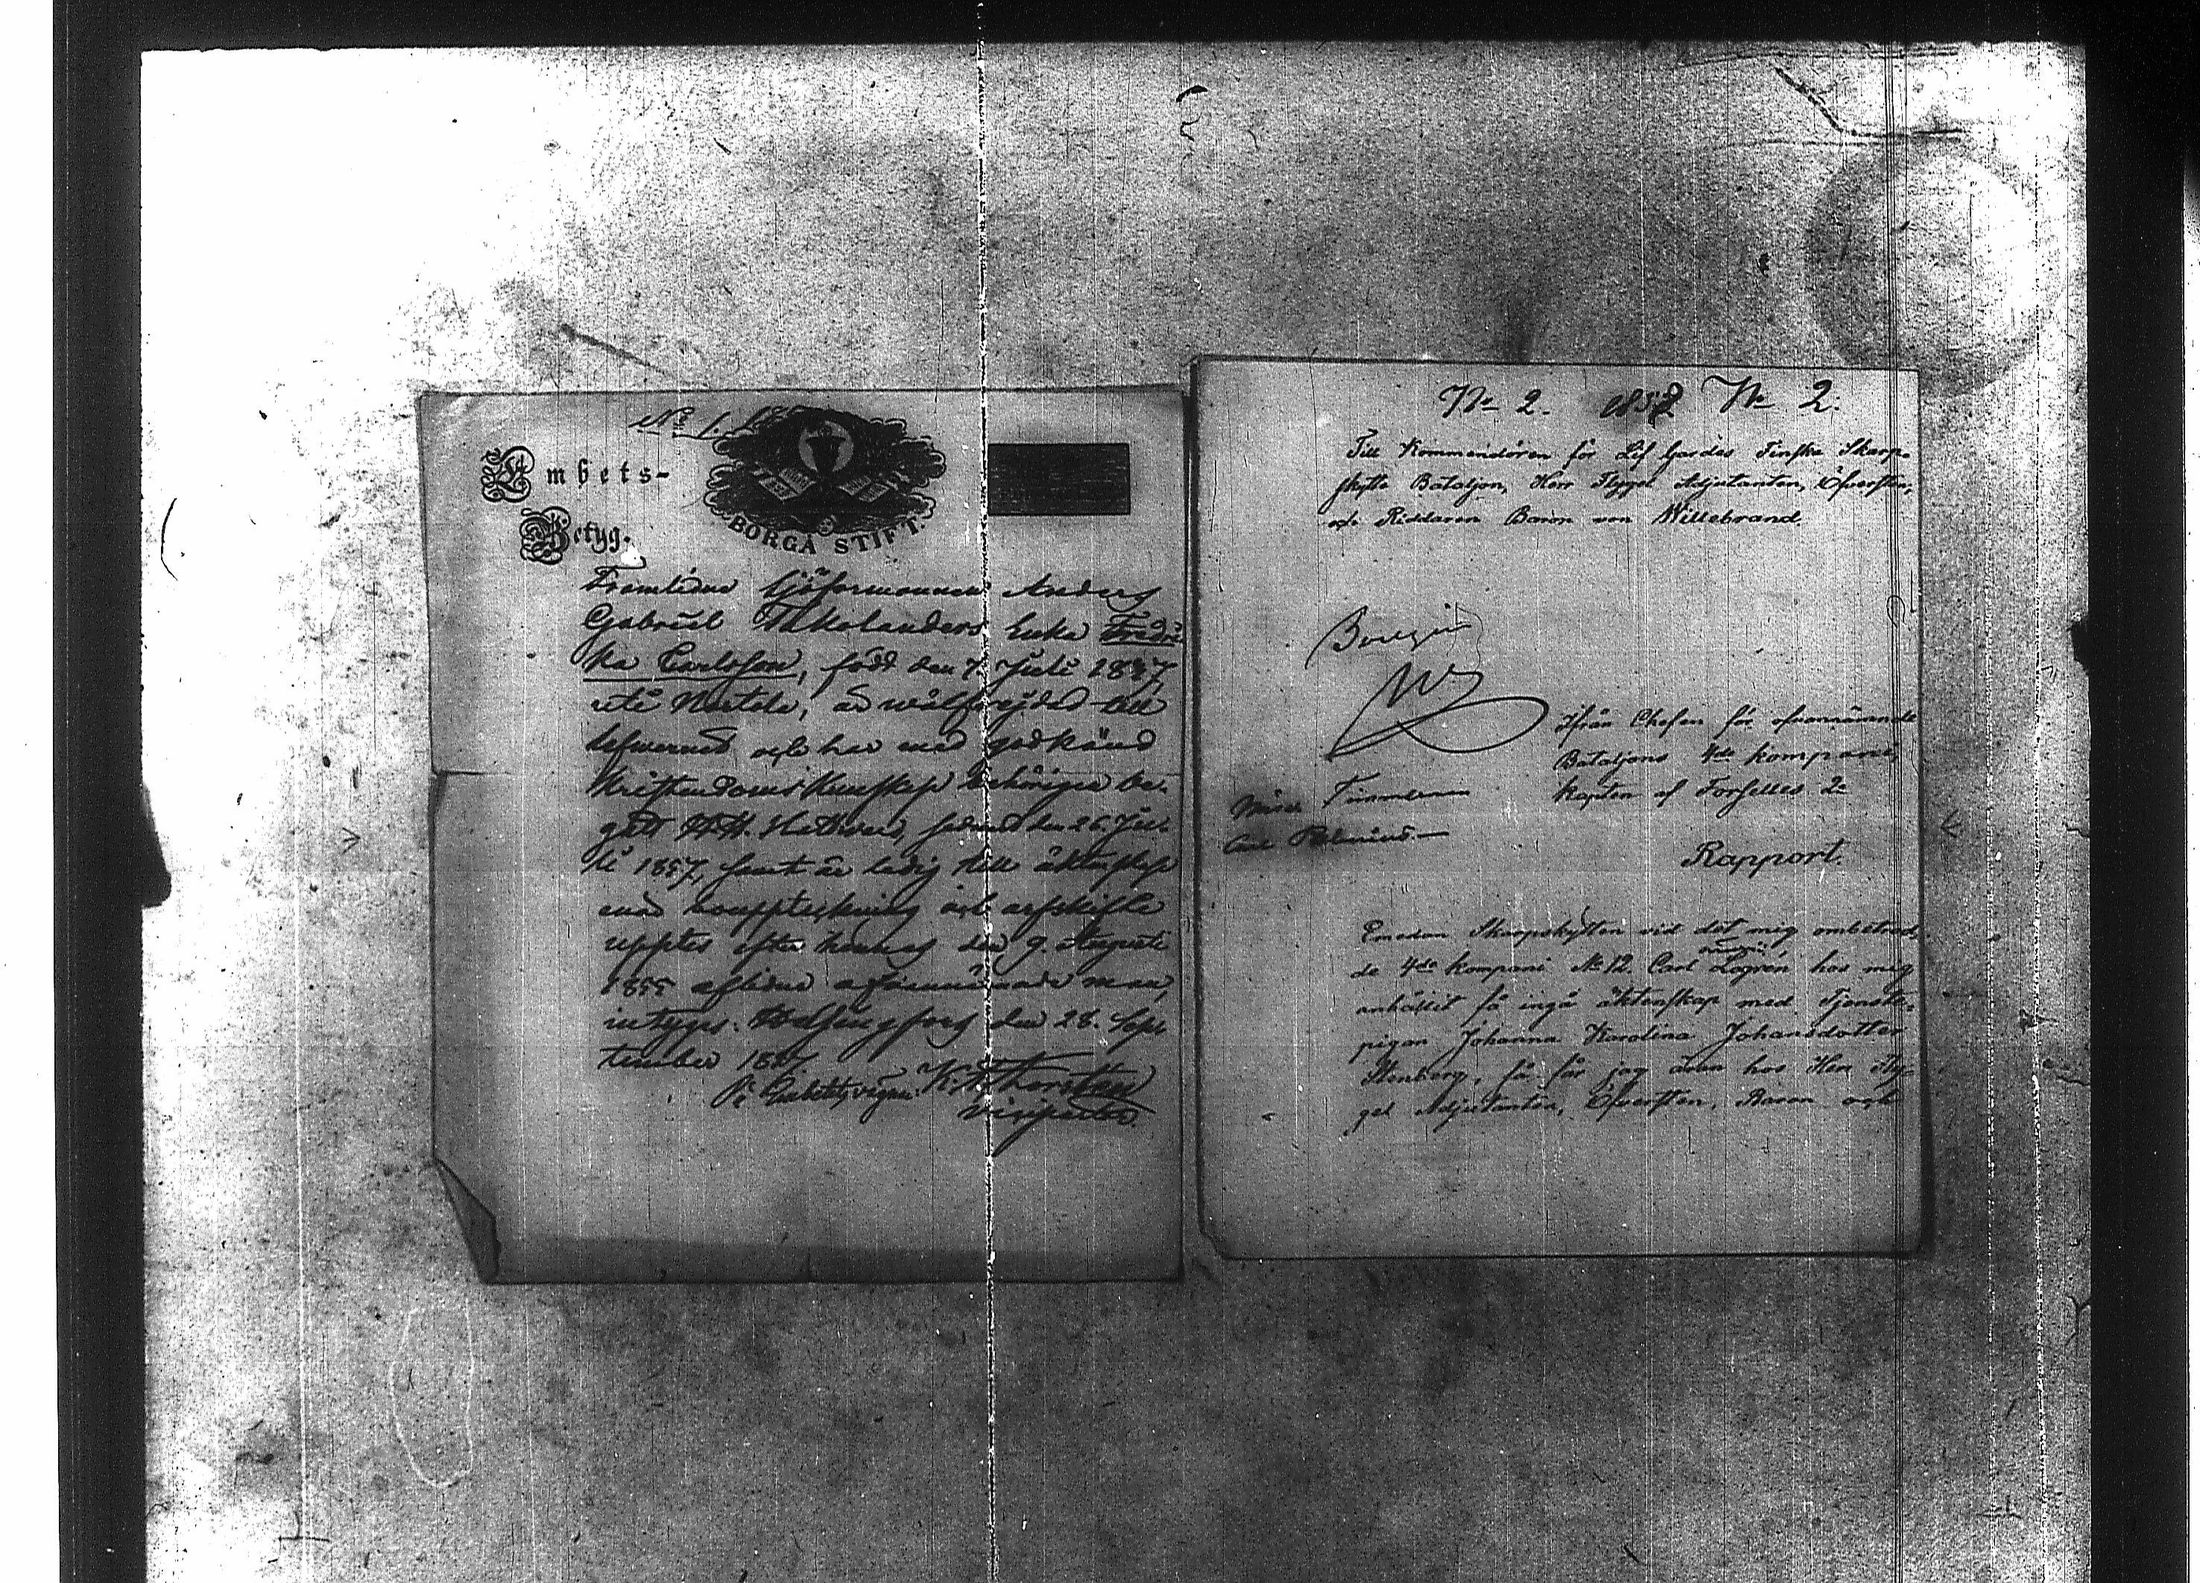 No 1.
Embets-
Betyg.
BORGÅ STIFT
Framlidne Sjöformannen Anders
Gabriel Nikolanders Enka Fredri-
ka Carlsson, född den 7. Juli 1827
uti är wälfrejdad till
lefwernet och har med godkänd
Kristendoms Kunskap behörigen be-
gått H.H. Nattvard, sednast den 26. Ju-
li 1857, samt är ledig till äktenskap
med bouppteckning och arfskifte
upptes efter hennes den 9. Augusti
1855 aflidne ofvannämnde man,
intygas. Helsingfors den 28. Sep-
tember 1857.
På Embetets vägnar: K. Thorström
Vicepastor.
No 2. No 2.
Till Kommendören för Lif Gardes Finska Skarp-
skytte Bataljon, Herr Flygel Adjutanten, Öfversten,
och Riddaren Baron von Willebrand.
Ifrån Chefen för ofvannämnde
Bataljons 4de kompani,
Kapten af Forselles 2a
Rapport.
Emedan Skarpskytten vid det mig ombetrod-
de 4de kompani No 12. Carl Lagrén hos mig
anhållit få ingå äktenskap med Tjenste-
pigan Johanna Karolina Johansdotter
Stenberg, så får jag hos Herr Fly-
gel Adjutanten, Öfversten, Baron och